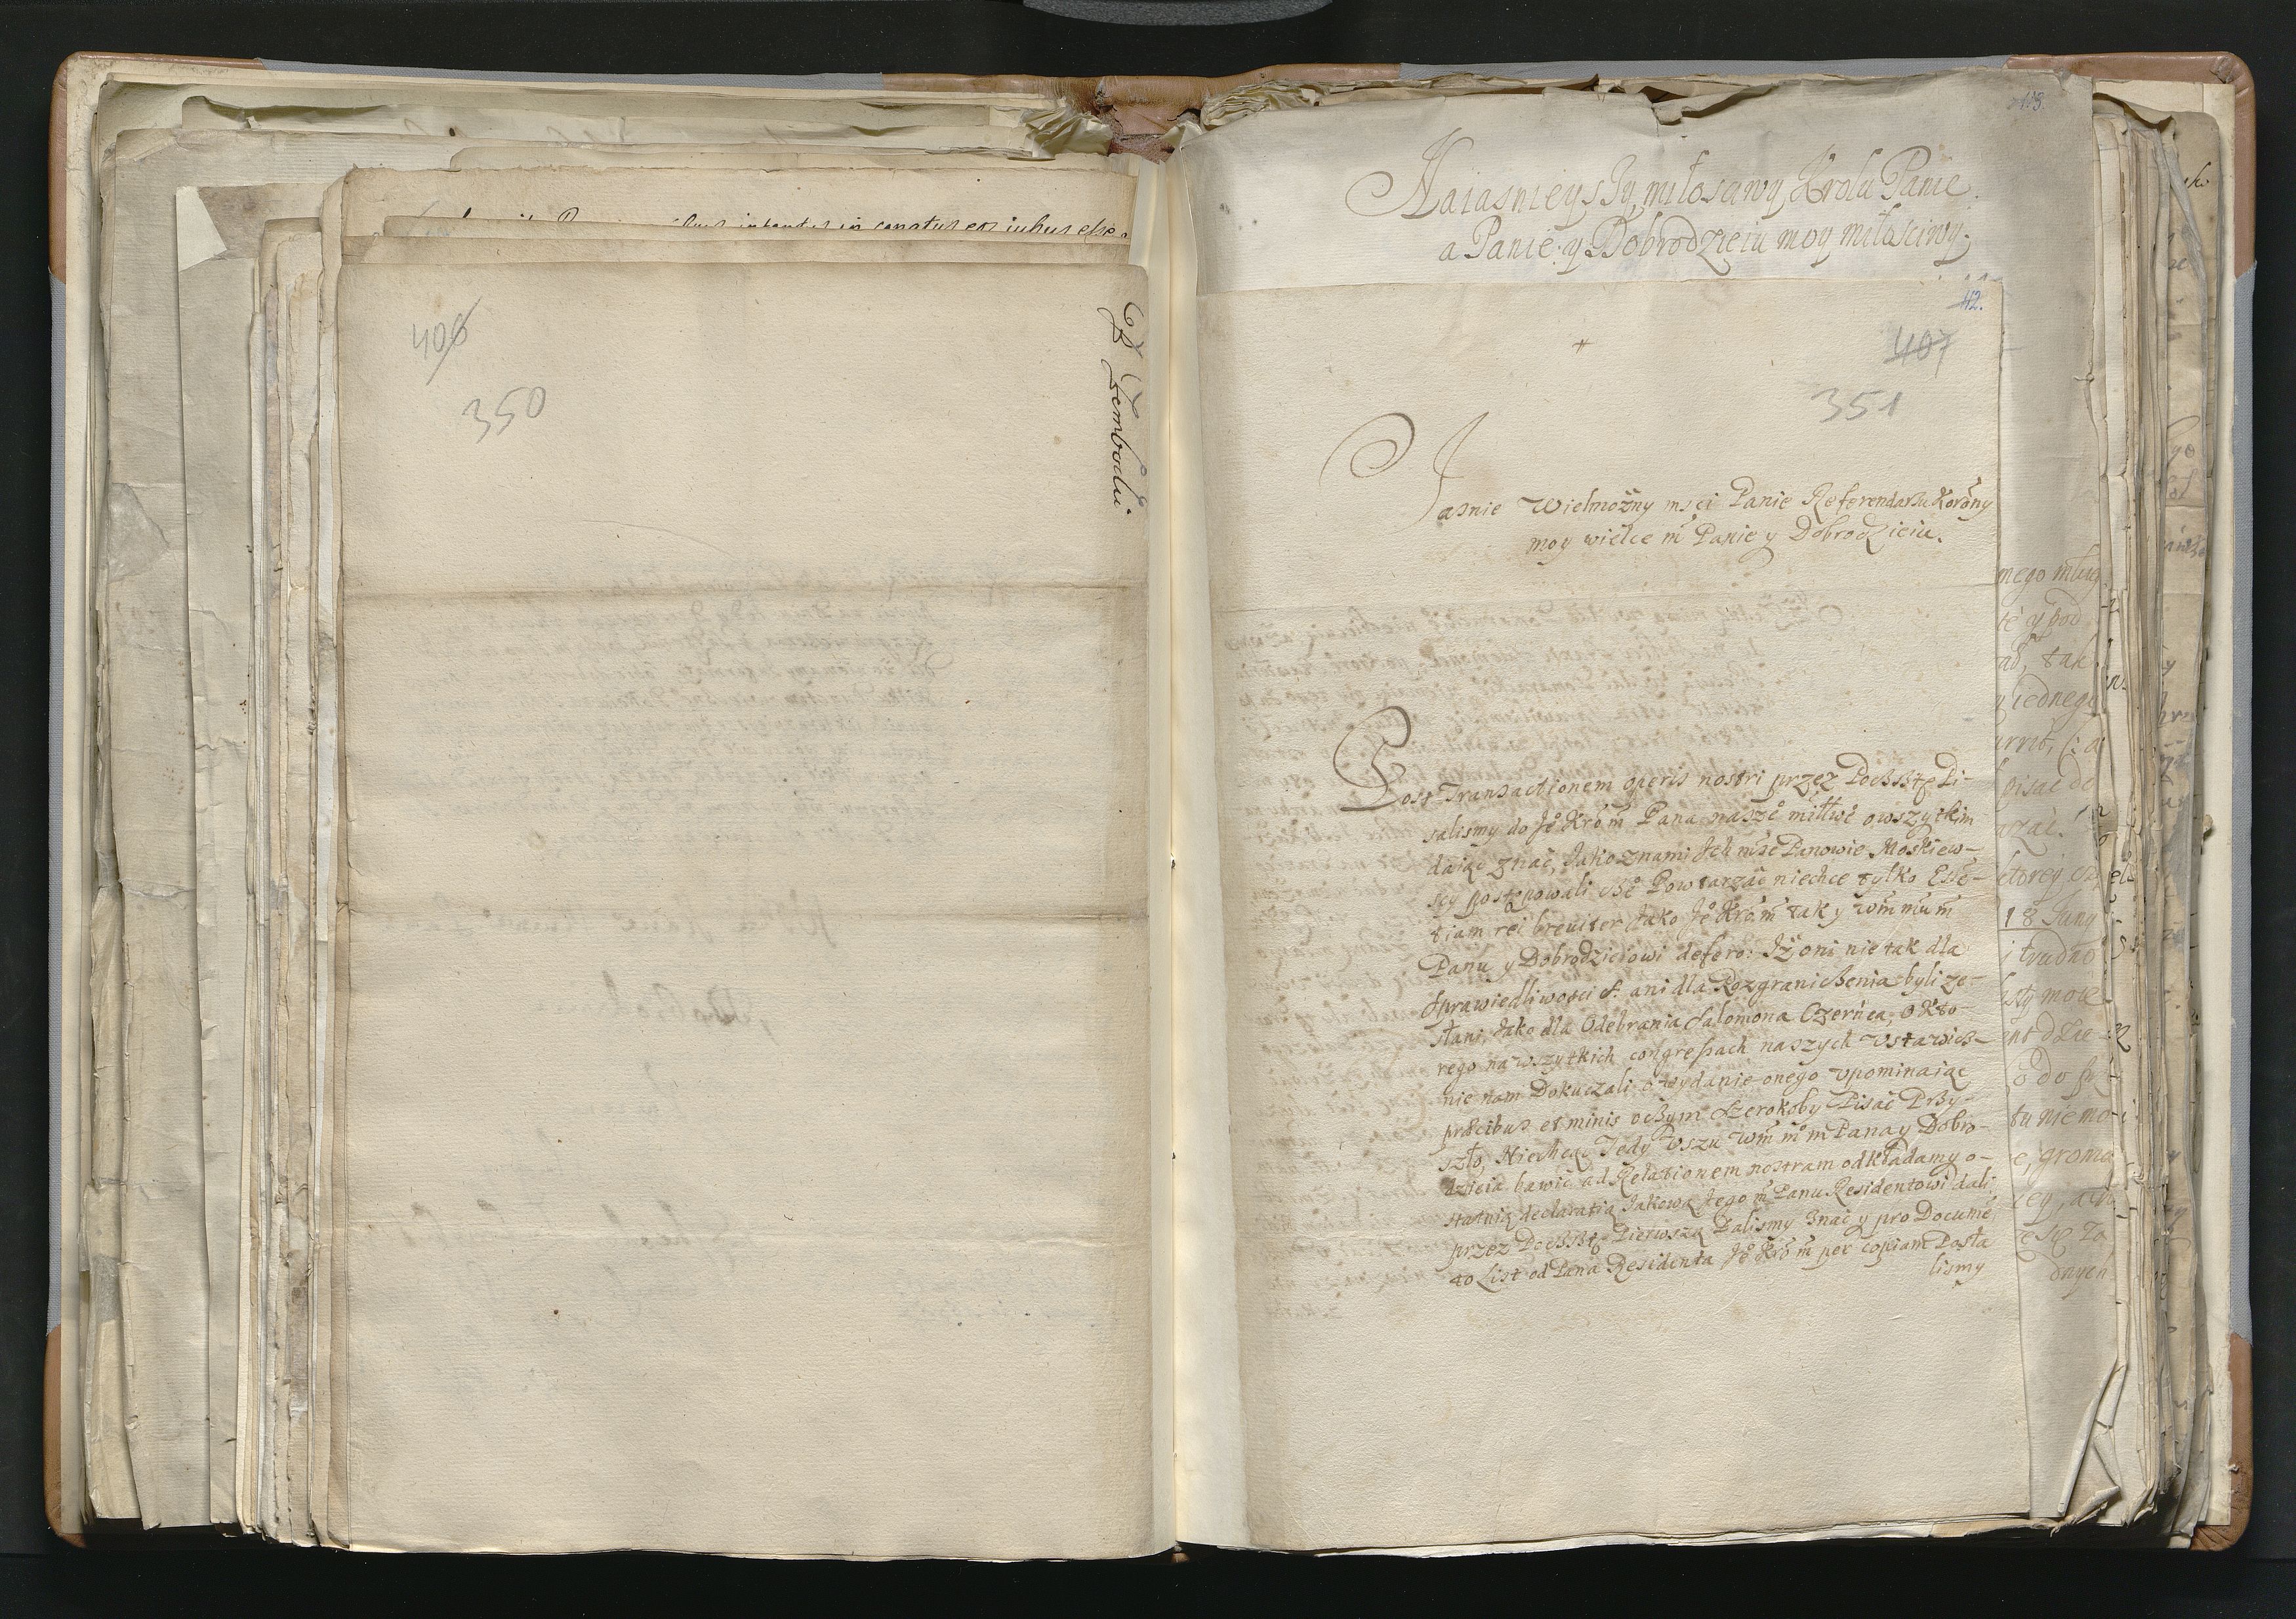 406
350
P Zembocki
113.
Naiasnieyszy, miłosciwy Krolu Panie
a Panie y Dobrodzieiu moy miłosciwy.
42.
407
351
Jasnie Wielmożny msci Panie Referendarzu Korony
moy wielce m Panie y Dobrodzieiu.
Post Transactionem operis nostri przez Pocsstę Pi-
salismy do Je° Kro m Pana nasze° miłłwe° o wszytkim
daiąc znać, Jako znami Ich mśc Panowie Moskiew-
scy postępowali cße° Powtarzać niechcę tylko Esse-
tiam rei breuiter Jako Je° Kro m tak y Wm mu m
Panu y Dobrodzieiowi defero: Iż oni nie tak dla
sprawiedliwosci S. ani dla Rozgranicßenia byli ze-
słani, Jako dla Odebrania Salomona Czerńca, o Kto-
rego na wszytkich congreßach naszych vstawicß-
nie nam Dokuczali o wydanie onego vpominaiąc
præcibus et minis o cßym szerokoby Pisać Prßy-
szło, Niechcąc Tedy Vszu Wm m° m Pana y Dobro-
dzieia bawić ad Relationem nostram odkładamy o-
statnią declaratią Jakową Jego m Panu Residentowi dali
przez Pocsstę Pierwszą Dalismy Znać y pro Documē
to List od Pana Residenta Je° Kro m per copiam Posła
lismy
nego mlug
te y pod
ad, tak
y iednego
pisac do
ktorey
18 Juny
trudno
tu niemo
groma